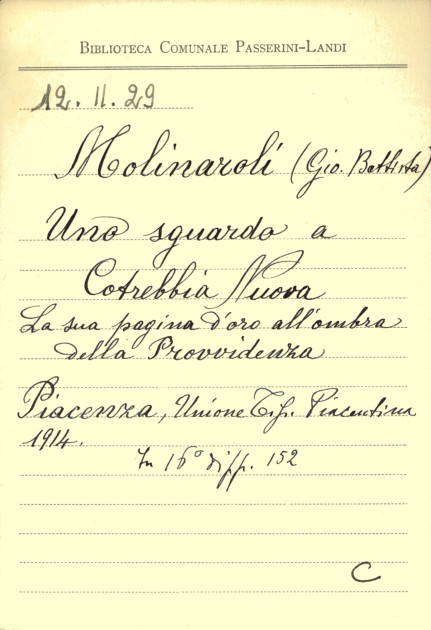 BIBLIOTECA COMUNALE PASSERINI-LANDI
12.11.29
Molinaroli (Gio. Battista)
Uno sguardo a
Cotrebbia Nuova
La sua pagina d'oro all'ombra
della Provvidenza
Piacenza, Unione Tip. Piacentina
1914.
In 16° di pp. 152
C